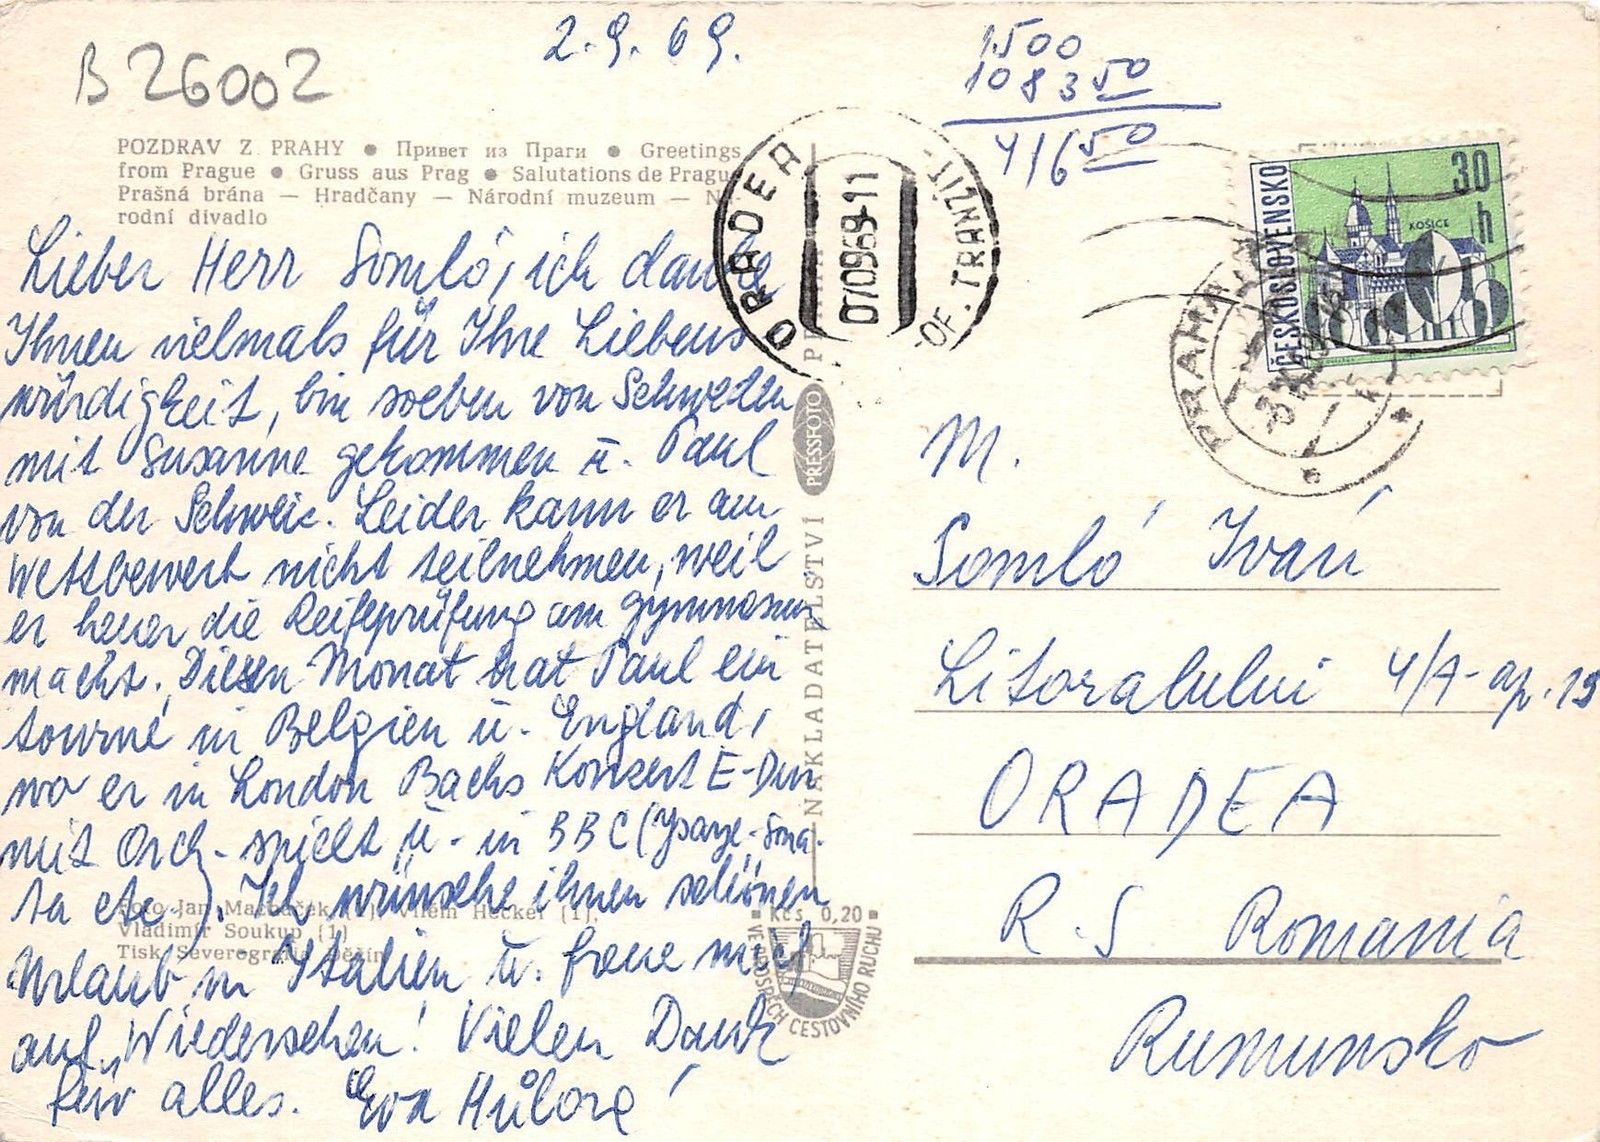 B 26002
2.9.69.
1500
1083 50
416 50
POZDRAV Z PRAHY ● Привет из Праги ● Greetings
from Prague ● Gruss aus Prag ● Salutations de Prague
Prašná brána — Hradčany — Národní muzeum — Ná-
rodní divadlo
Lieber Herr Somló, ich danke
Ihnen vielmals für Ihre Liebens
würdigkeit, bin soeben von Schweden
mit Susanne gekommen u. Paul
von der Schweiz. Leider kann er am
Wettbewerb nicht teilnehmen, weil
er heuer die Reifeprüfung am Gymnasium
macht. Diesen Monat hat Paul ein
tourné in Belgien u. England,
wo er in London Bachs Konzert E-Dur
mit Orch. spielt u. in BBC (Ysaye-Sona-
ta etc.). Ich wünsche ihnen schönen
Urlaub in Italien u. freue mich
auf Wiedersehen! Vielen Dank
für alles. Eva Hůlová
Foto Jan Macháček (1), Vilém Heckel (1),
Vladimír Soukup (1)
Tisk Severografia Děčín
PRESSFOTO
NAKLADATELSTVÍ
Kčs 0,20
VE PROSPĚCH CESTOVNÍHO RUCHU
ORADEA
070969-11
OF. TRANZIT
ČESKOSLOVENSKO
30 h
KOŠICE
PRAHA
M.
Somló Iván
Litoralului 4/A-ap.19
ORADEA
R.S Romania
Rumunsko